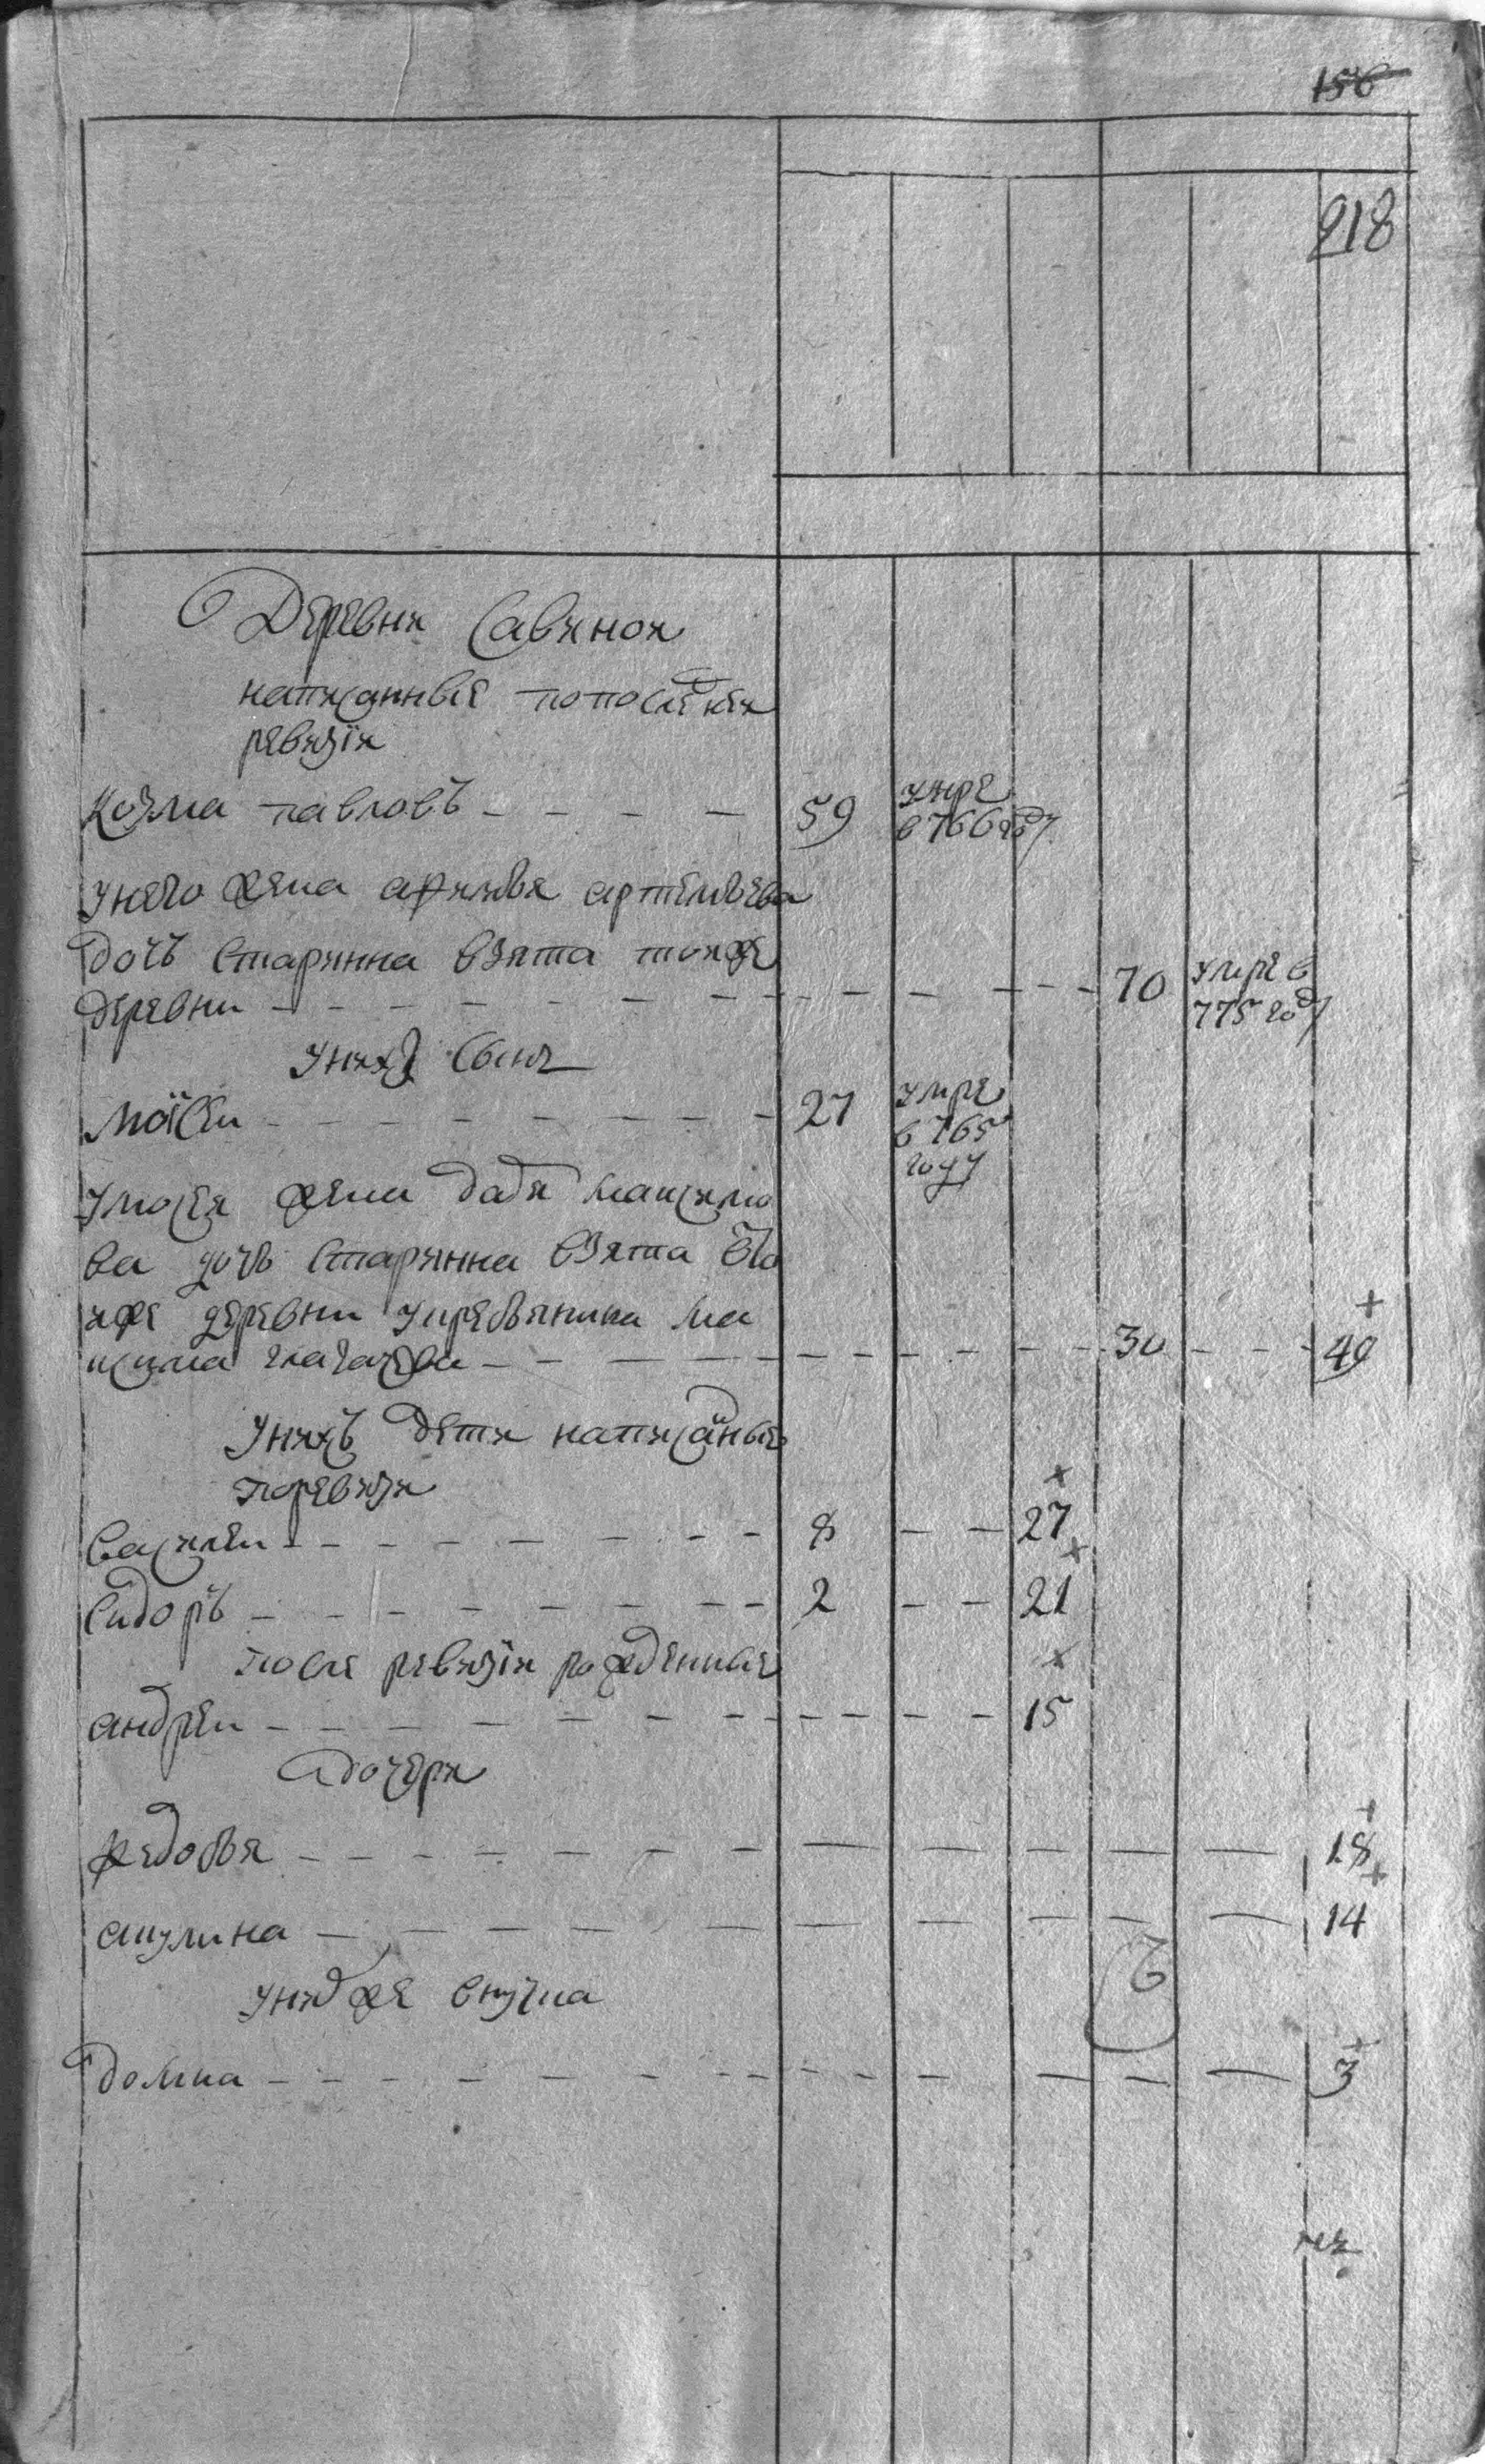 156
218
Деревня Савиноя
написанныя попоследнеи
ревизiи
Козма павловъ - - - - 59 умре
в 766 году
унего жена афимья артемьева
дочь старинна взята тояже
деревни - - - 70 умре в
775 году
унихъ сынъ
Моiсеи - - - 27 умре
в 765
году
умосея жена дадя максимо
ва дочь старинна взята То
яже деревни укрестьянина ма
ксима - - - 30 - - 49
унихъ дети написаныя
поревизи
василеи - - - 8 - - 27
Сидоръ - - - 2 - - 21
после ревизiи рожденныя
андреи - - - 15
адочери
федосья - - - 18
акулина - - - 14
унихже внучка
домна - - - 3